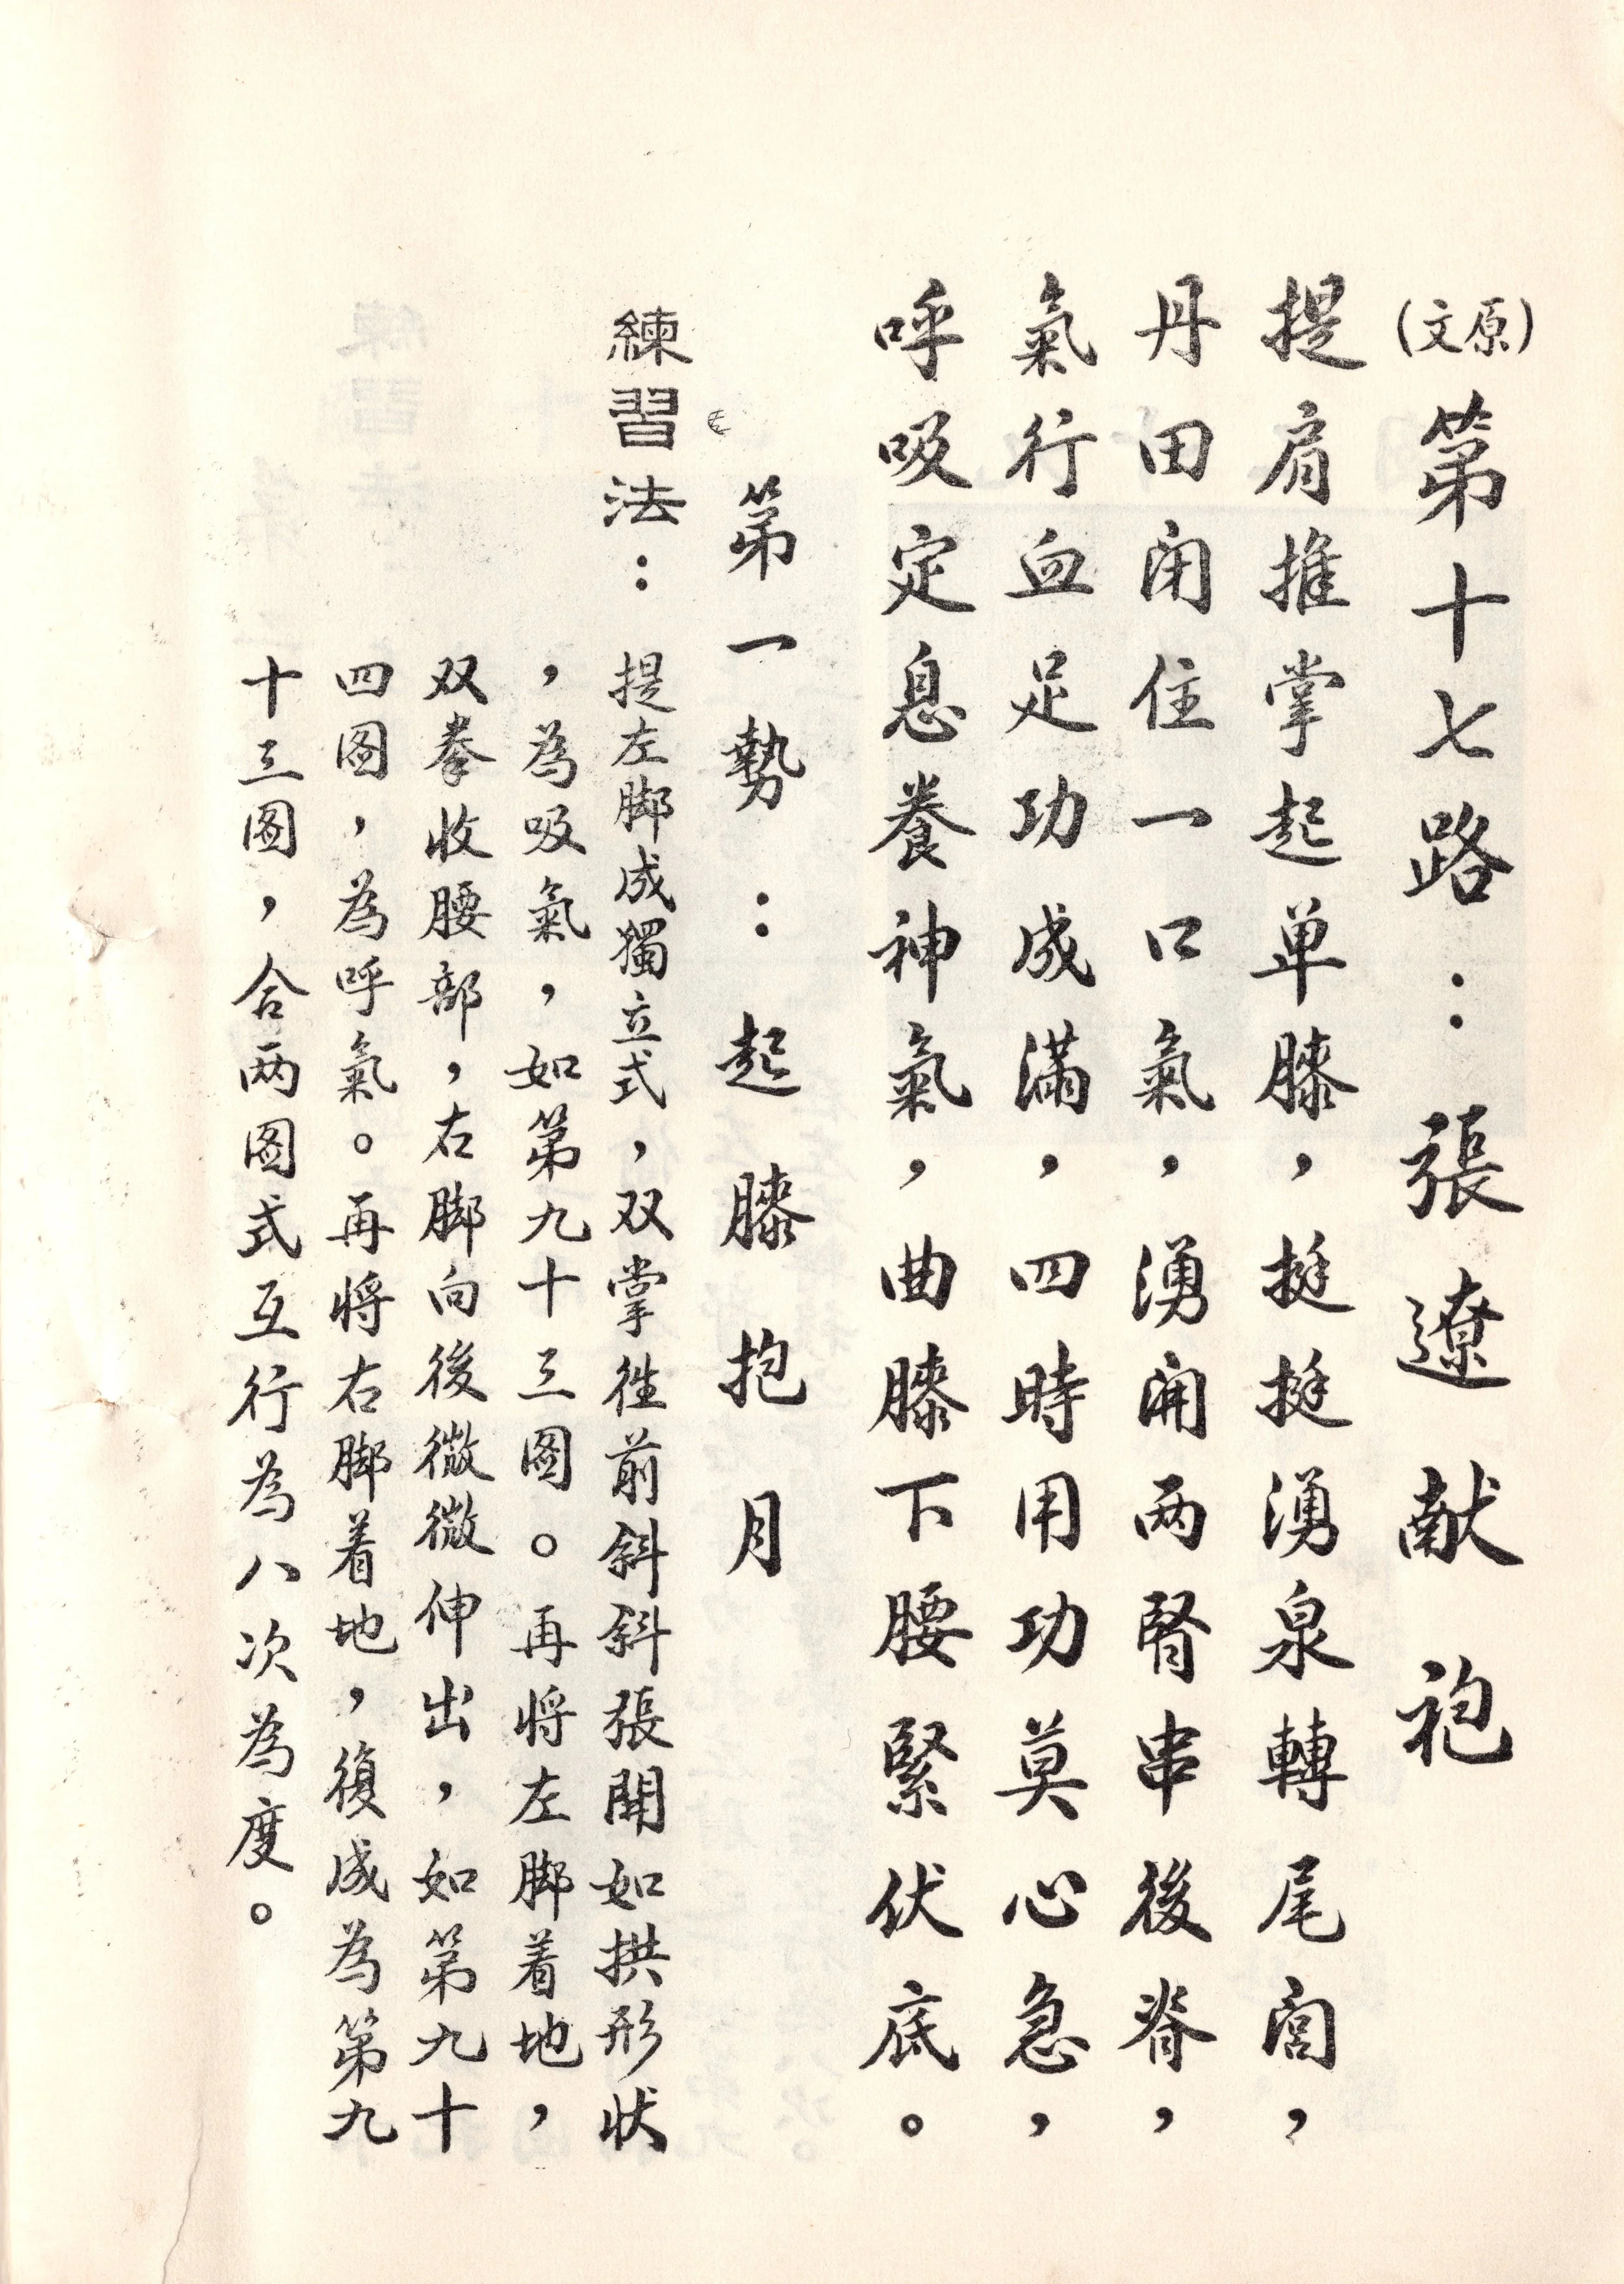 (原文)第十七路：張遼献袍
提肩推掌起单膝，挺挺湧泉轉尾閭，
丹田闭住一口氣，湧開两腎串後脊，
氣行血足功成滿，四時用功莫心急，
呼吸定息養神氣，曲膝下腰緊伏底。
第一勢：起膝抱月
練習法：提左脚成獨立式，双掌徃前斜斜張開如拱形状
，為吸氣，如第九十三图。再将左脚着地，
双拳收腰部，右脚向後微微伸出，如第九十
四图，為呼氣。再将右脚着地，復成為第九
十三图，合两图式互行為八次為度。